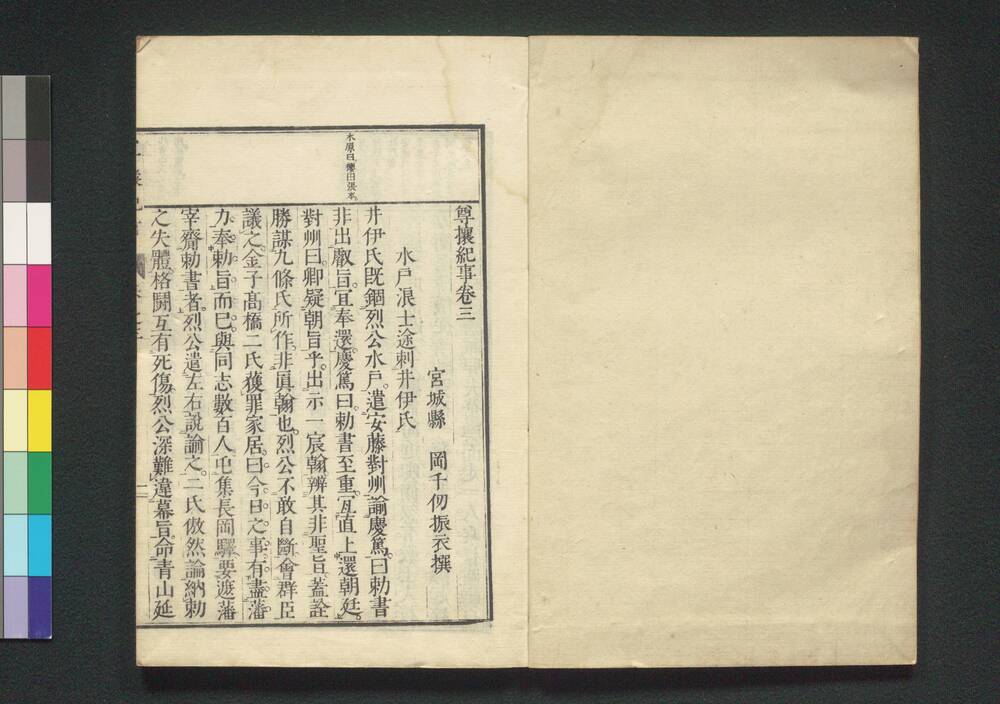 尊攘紀事卷三
宮城縣 岡千仞振衣撰
水戶浪士途刺井伊氏
井伊氏既錮烈公水戶。遣安藤對州諭慶篤。曰勅書
非出叡旨。宜奉還。慶篤曰。勅書至重。宜直上還朝廷。
對州曰。卿疑朝旨乎。出示一宸翰。辨其非聖旨。蓋詮
勝謀九條氏所作。非眞翰也。烈公不敢自斷。會群臣
議之。金子髙橋二氏獲罪家居。曰今日之事。有盡藩
力。奉勅旨而已。與同志數百人屯集長岡驛。要遮藩
宰齎勅書者。烈公遣左右說諭之。二氏傲然論納勅
之失體。格鬪互有死傷。烈公深難違幕旨。命青山延
水原曰。櫻田張本。